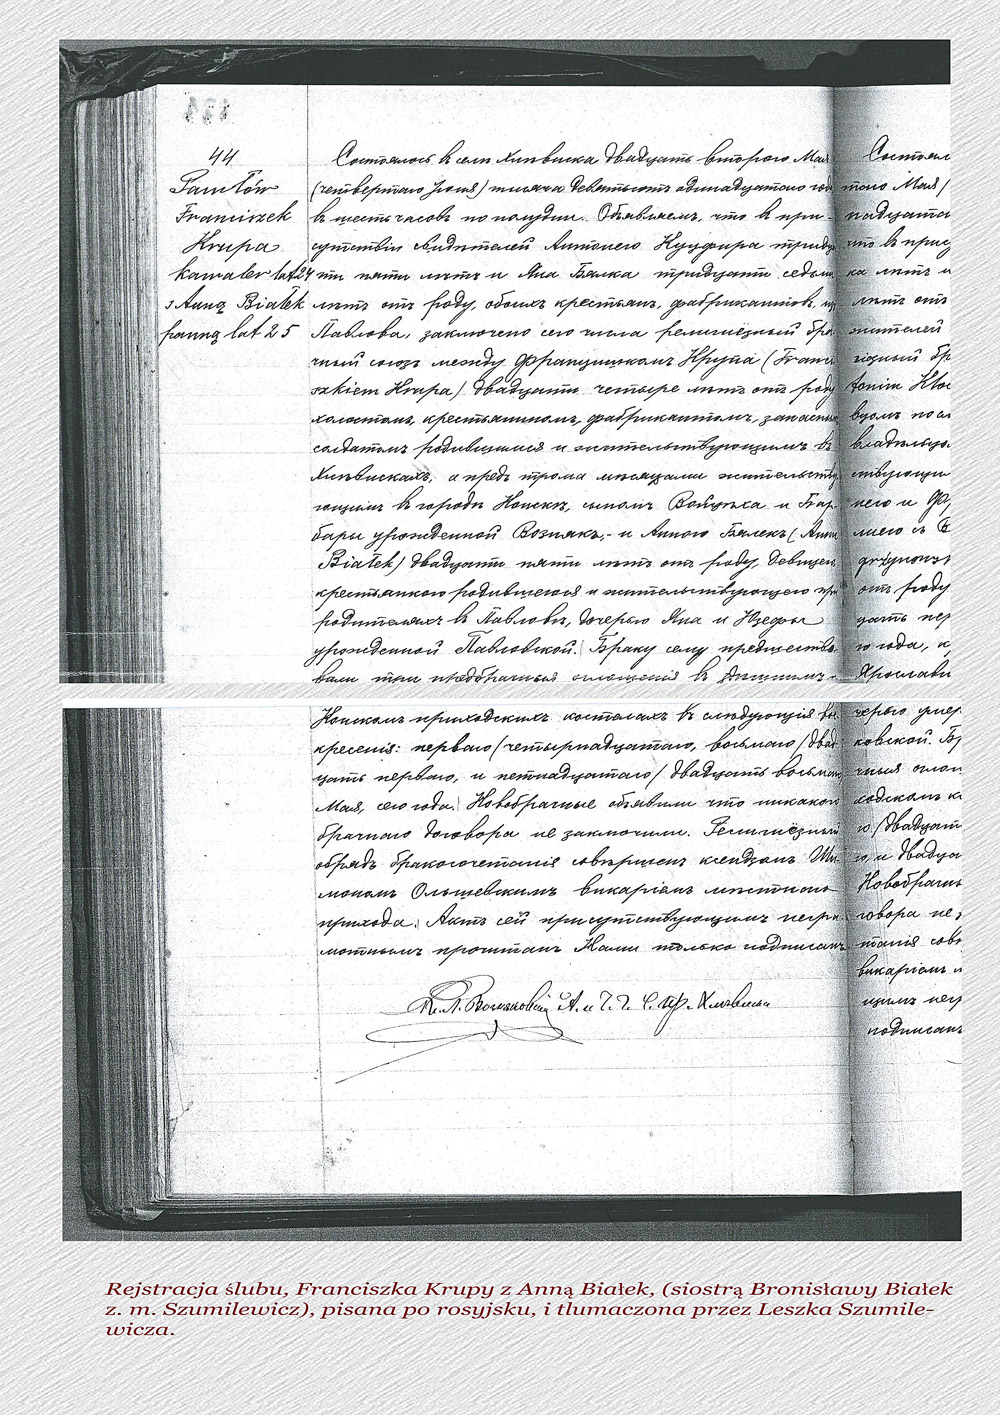 44
Pawłów
Franciszek
Krupa
kawaler lat 24
z Anną Białek
panną lat 25
Состоялось в селѣ Хлѣвиска двадцать второго Мая
(четвертаго Іюня) тысяча девятьсотъ одинадцатаго год
въ шесть часовъ по полудни. Объявляемъ, что въ при-
сутствіи свидѣтелей Антонего тридца
ти пяти лѣтъ и Яна Бялка тридцати седьми
лѣтъ отъ роду, обоихъ крестьян, фабрикантовъ, из
Павлова, заключено сего числа религіёзный бра
чный союз между Францишкомъ Крупа (Franci
szkiem Krupa) двадцати четыре лѣтъ отъ роду
холостымъ, крестьяниномъ, фабрикантомъ, запаснымъ
солдатомъ родившимся и жительствующимъ въ
Хлѣвискахъ, а предъ тремя мѣсяцами жительству
ющимъ въ городѣ Конскъ, сыномъ Войцѣха и Бар
бары урожденной Возняк,- и Анною Бялекъ (Anną
Białek) двадцати пяти лѣтъ отъ роду, девицею
крестьянкою родившеюся и жительствующею при
родителяхъ въ Павловѣ, дочерью Яна и Юзефы
урожденной Павловской. Браку сему предшество
вали три предбрачныя оглашенія въ здѣшнимъ-
Конскомъ приходскихъ костелахъ въ слѣдующія во
кресенія: перваго/четырнадцатаго, восьмаго/двад
цать перваго, и петнадцатаго/двадцать восьмаго
Мая, сего года. Новобрачные объявили что никакого
брачнаго договора не заключили. Религіёзный
обрядъ бракосочетанія совершенъ ксендзомъ Ши
мономъ Ольшевскимъ викаріемъ мѣстнаго
прихода. Актъ сей присутствующимъ негра-
мотнымъ прочтанъ Нами только подписанъ
Состоял
таго Мая/
надцата
что въ прис
ка лѣтъ и
лѣтъ отъ
жителей
гіозный бр
вдом посл
владѣльца
ствующи
отъ роду
цать пер
го года, к
Ярослави
черью умер
ковской. Бр
чныя огла
ходскомъ к
го/двадцат
го, и двадца
Новобрачн
говора не з
танія сове
викаріем м
щимъ негр
подписанъ
Rejstracja ślubu, Franciszka Krupy z Anną Białek, (siostrą Bronisławy Białek
z. m. Szumilewicz), pisana po rosyjsku, i tlumaczona przez Leszka Szumile-
wicza.